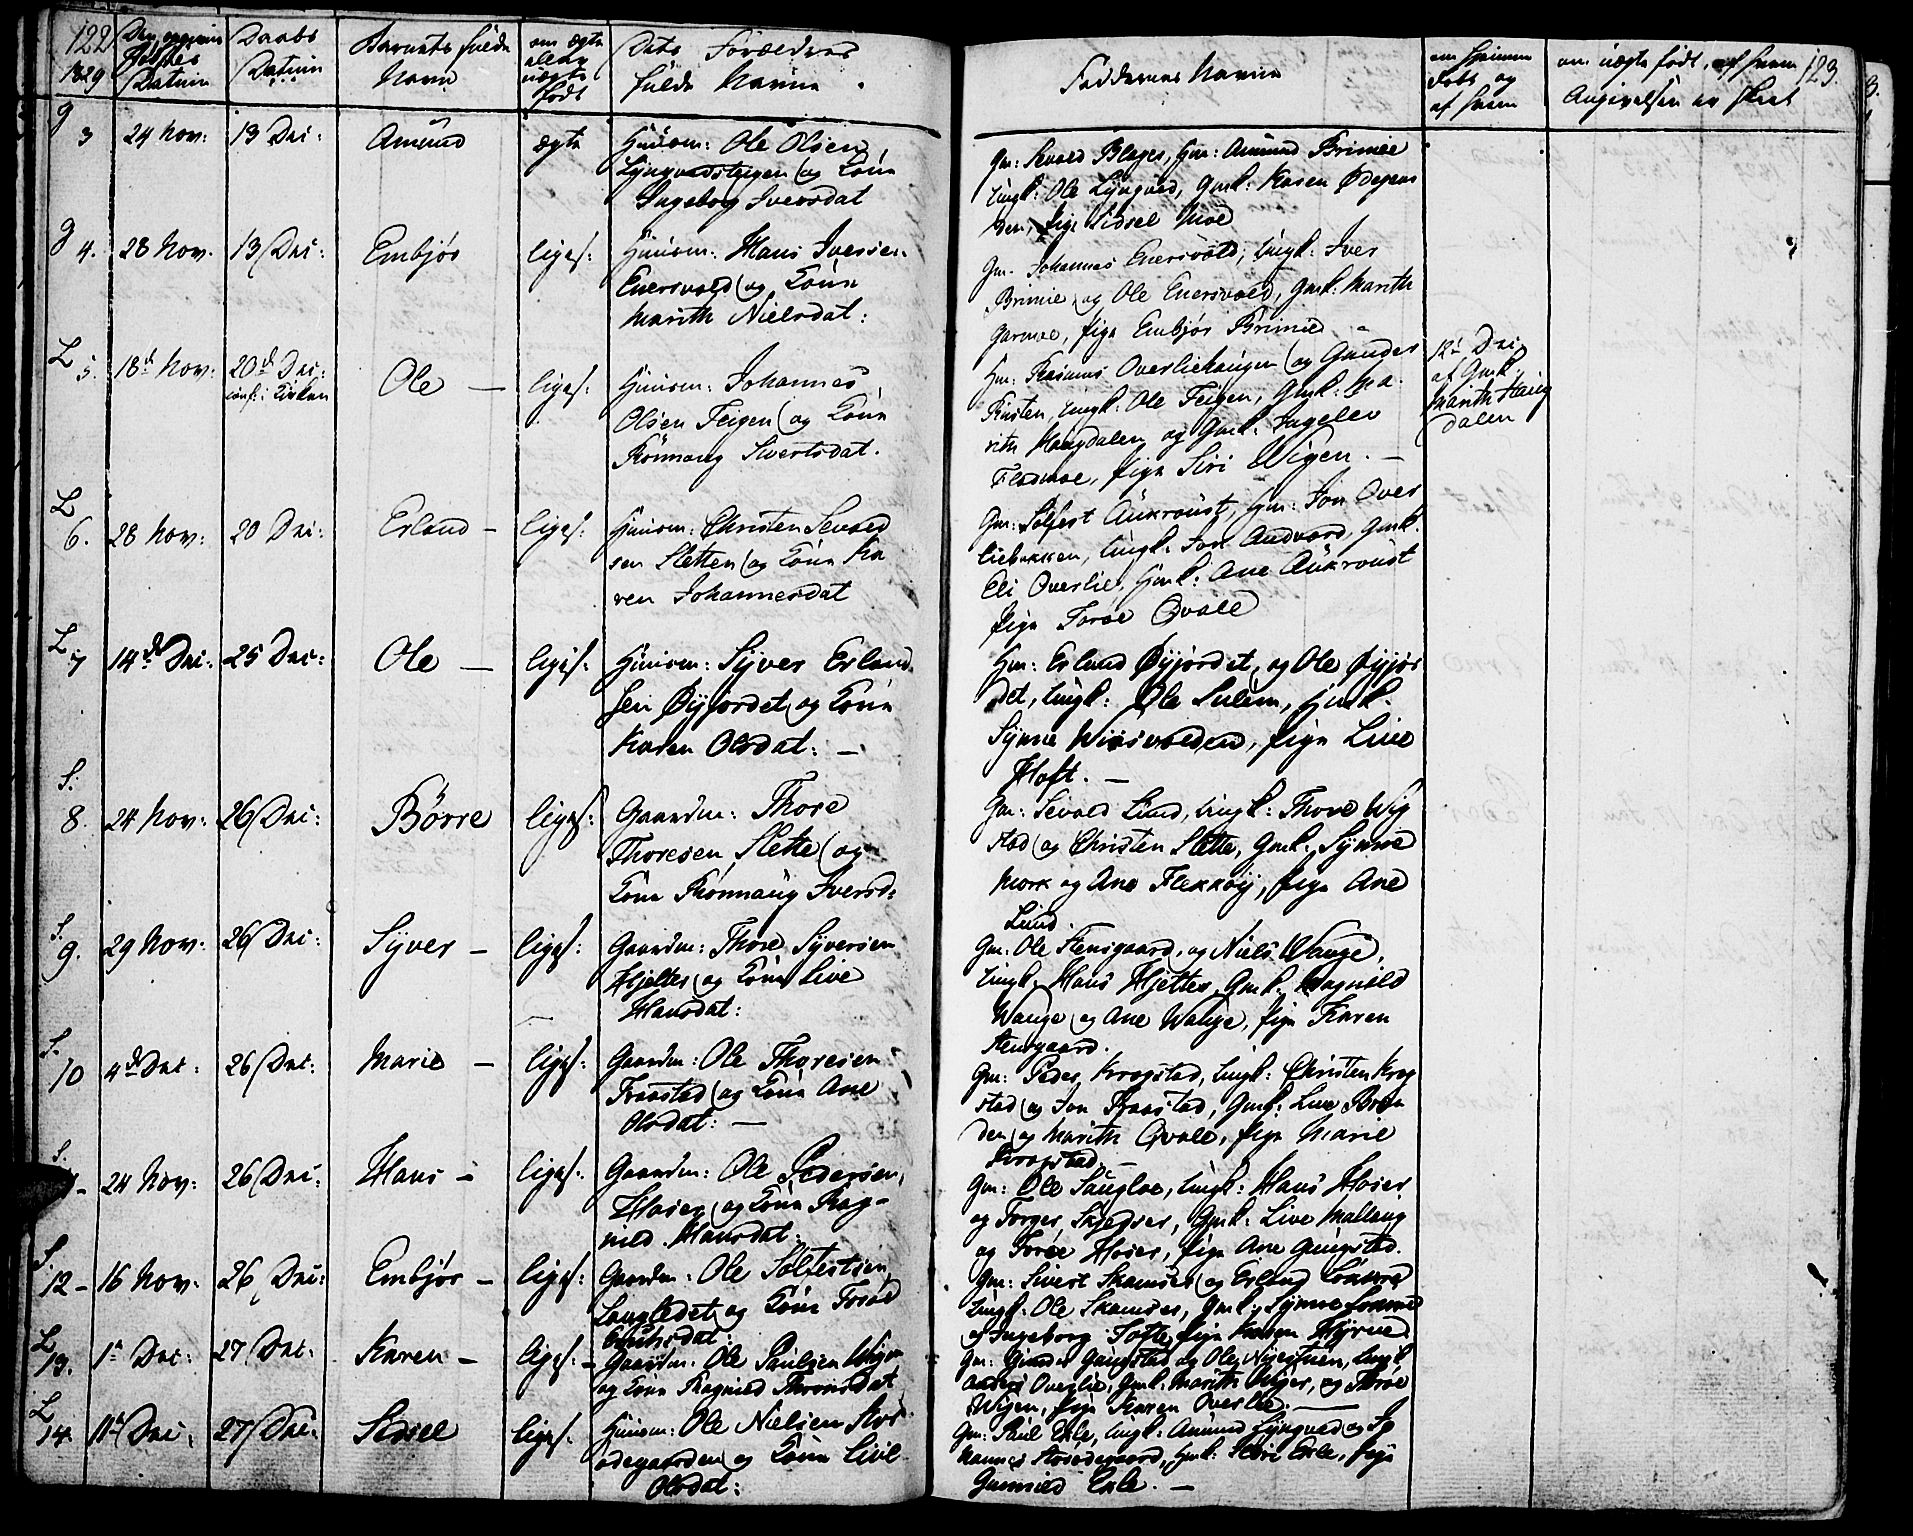 122
1829
Fødsels
Datum
Daabs
Datum
Barnets fulde
Navn
om ægte
eller
uægte
født
Dets Forældres
fulde Navne
Faddernes Navne
om hjemme
døbt og
af hvem
om uægte født, af hvem
Angivelsen er skeet
123.
g
3
24 Nov:
13 Dec:
Amund
ægte
Huusm: Ole Olsen
Lyngvedsteigen og Kone
Ingeborg Iversdat
Gm: Sevald Blager, Gm: Amund Brimie
Ungk: Ole Lyngved, Gmk: Karen Ødegaar
den, Pige Sidsel Moe
g
4.
28 Nov.
13 Dec:
Embjør
liges:
Huusm: Hans Iversen
Enersvold og Kone
Marith Nielsdat:
Gm. Johannes Enersvold, Ungk: Iver
Brimie og Ole Enersvold, Gmk: Marith
Garmoe, Pige Embjør Brimie -
L
5.
18d Nov:
20d Dec:
conf: i Kirken
Ole -
liges:
Huusm: Johannes
Olsen Teigen og Kone
Rønnaug Sivertsdat.
Hm: Rasmus Overliehaugen og Gunder
Rusten, Ungk: Ole Teigen, Gmk: Ma
rith Haugdalen og Gmk: Ingeler
Fladmoe, Pige Siri Wigen. -
12t Dec
af Gmk.
Marith Haug
dalen
L
6.
28 Nov:
20 Dec:
Erland -
liges:
Huusm: Christen Sevald
sen Sletten og Kone Ka
ren Johannesdat
Gm: Solfest Aukroust, Hm: Jon Over
liebakken, Ungk: Jon Andvord, Gmk.
Eli Overlie, Gmk: Ane Aukroust
Pige Toroe Qvale
L
7
14de Dec:
25 Dec:
Ole -
liges:
Huusm: Syver Erland
sen Øyjordet og Kone
Karen Olsdat: -
Hm: Erland Øyjordet og Ole Øyjor
det, Ungk: Ole Sulem, Hmk.
Synne , Pige Live
Hoft. -
S:
8.
24 Nov:
26 Dec:
Børre
liges:
Gaardm: Thore
Thoresen Slette og
Kone Rønnaug Iversd:
Gm: Sevald Lund, Ungk: Thore Wig
stad og Christen Slette, Gmk: Synnøe
Mork og Ane Flekkøy, Pige Ane
Lund.
S.
9.
29 Nov:
26 Dec:
Syver -
liges:
Gaardm: Thore Syversen
Hjelter og Kone Live
Hansdat:
Gm: Ole Stensgaard, og Niels Wange,
Ungk. Hans Hjelter, Gmk. Ragnild
Wange og Ane Wange, Pige Karen
Stensgaard.
S.
10
4de Dec:
26 Dec:
Marie -
liges:
Gaardm: Ole Thoresen
Fraastad og Kone Ane
Olsdat: -
Gm: Peder Krogstad, Ungk: Christen Krog
stad og Jon Fraastad, Gmk: Live Bræn
den og Marith Qvale, Pige Marie
Krogstad. -
S.
24 Nov:
26 Dec:
Hans -
liges:
Gaardm: Ole Pedersen,
Hoser og Kone Rag-
nild Hansdat:
Gm: Ole Saugloe, Ungk: Hans Hoser
og Torger Skjedser, Gmk: Live Mallang
og Toroe Hoser, Pige Ane Gaugstad.
S.
12 -
16 Nov:
26 Dec:
Embjør -
liges:
Gaardm: Ole Solfestsen
og Kone Toroe
Gm: Sivert Skamser og Erland
Ungk: Ole Skamser, Gmk: Synnøe
og Ingeborg Tofte Pige Karen
L
13.
1te Dec:
27 Dec:
Karen -
liges: -
Gaardm: Ole Paulsen Wigen
og Kone Ragnild Thronsdat
Gm: Gunder Gaugstad og Ole , Ungk
Anders Overlie, Gmk: Marith Wiger, og Toroe
Wigen, Pige Karen Overlie. -
L
14.
11te Dec:
27 Dec:
Sidsel
liges:
Huusm: Ole Nielsen Stor
ødegaarden og Kone Live
Olsdat:
Gm: Paul Exle, Ungk: Amund Lyngved og Jo
hannes Storødegaard, Gmk: Siri Exle, Pige
Gunnild Exle. -